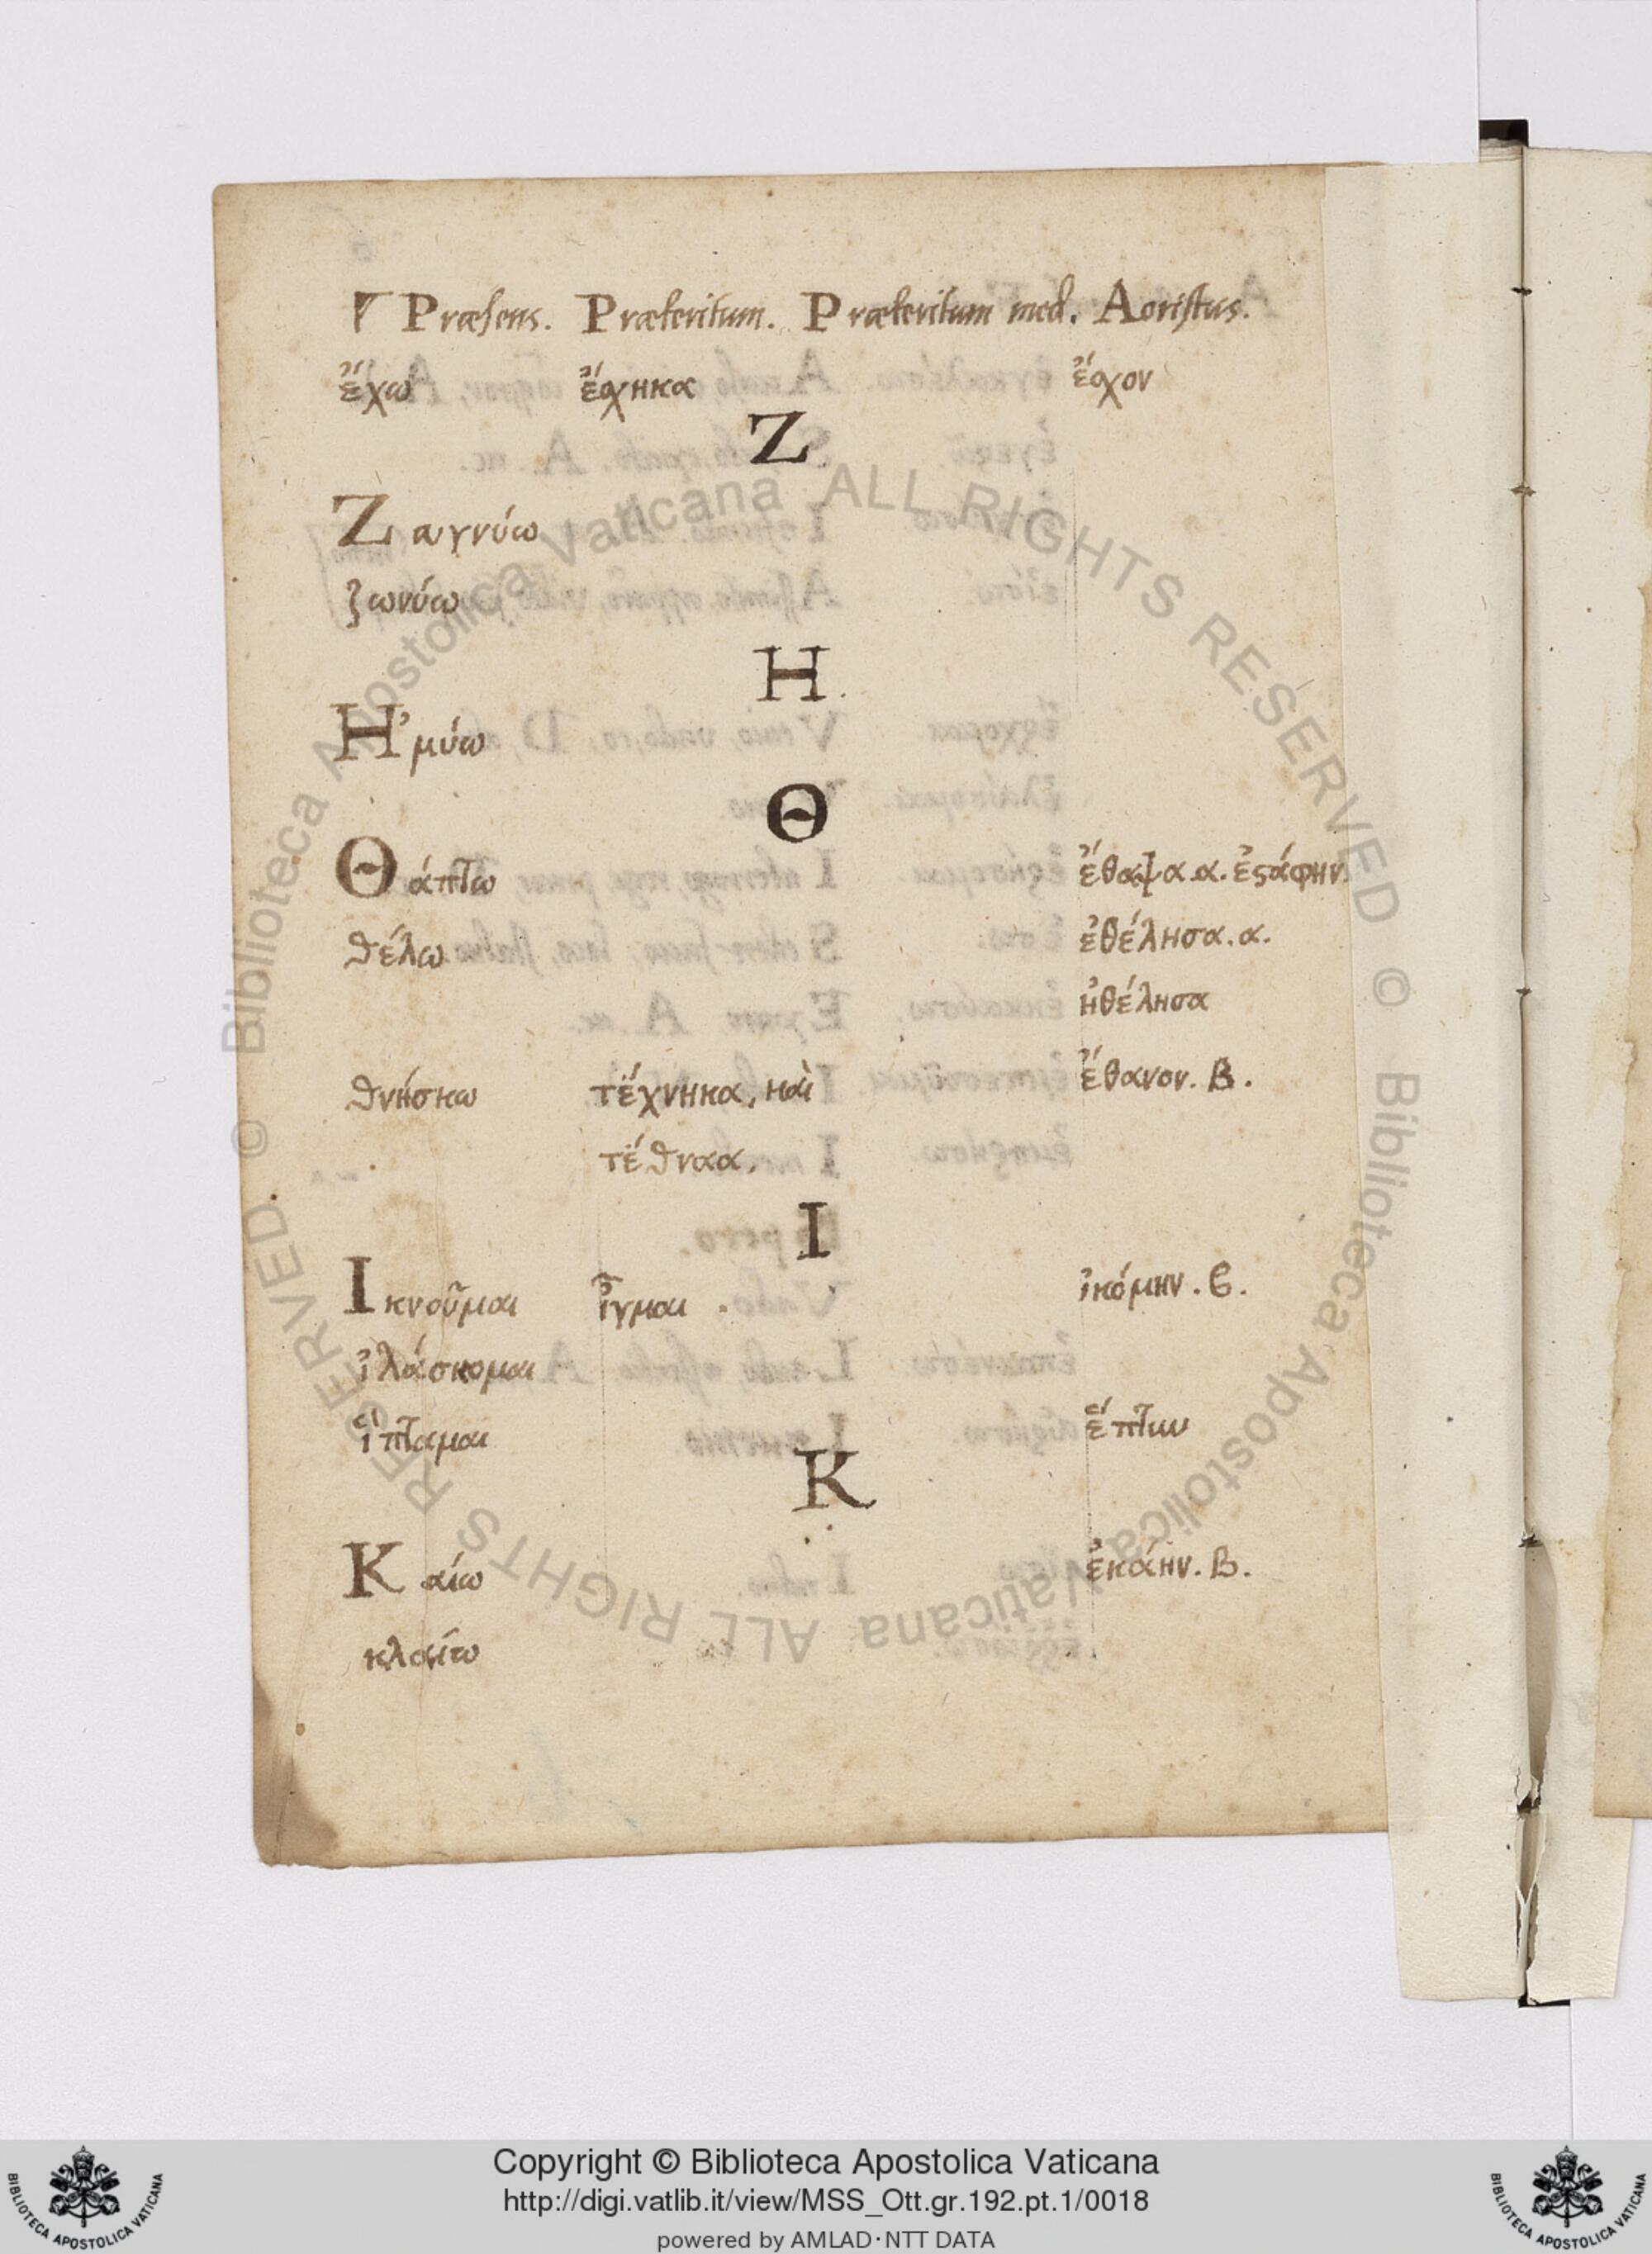 Præsens. Præteritum. Præteritum med. Aoristus.
ἔχω ἔσχηκα ἔσχον
Z
Ζαυγνύω
ζωνύω
H
Ἠμύω
Θ
Θάπτω ἔθαψα.α. ἐτάφην.
θέλω ἐθέλησα.α.
ἠθέλησα
θνήσκω τέχνηκα, καὶ ἔθανον. Β.
τέθναα.
I
Ικνοῦμαι ἶγμαι . ἱκόμην. β.
ἱλάσκομαι
ἵπταμαι ἕπτην
K
Καίω ἐκάην. Β.
κλαίω
Biblioteca Apostolica Vaticana ALL RIGHTS RESERVED ©
Biblioteca Apostolica Vaticana ALL RIGHTS RESERVED. ©
Copyright © Biblioteca Apostolica Vaticana
http://digi.vatlib.it/view/MSS_Ott.gr.192.pt.1/0018
powered by AMLAD·NTT DATA
BIBLIOTECA APOSTOLICA VATICANA
BIBLIOTECA APOSTOLICA VATICANA